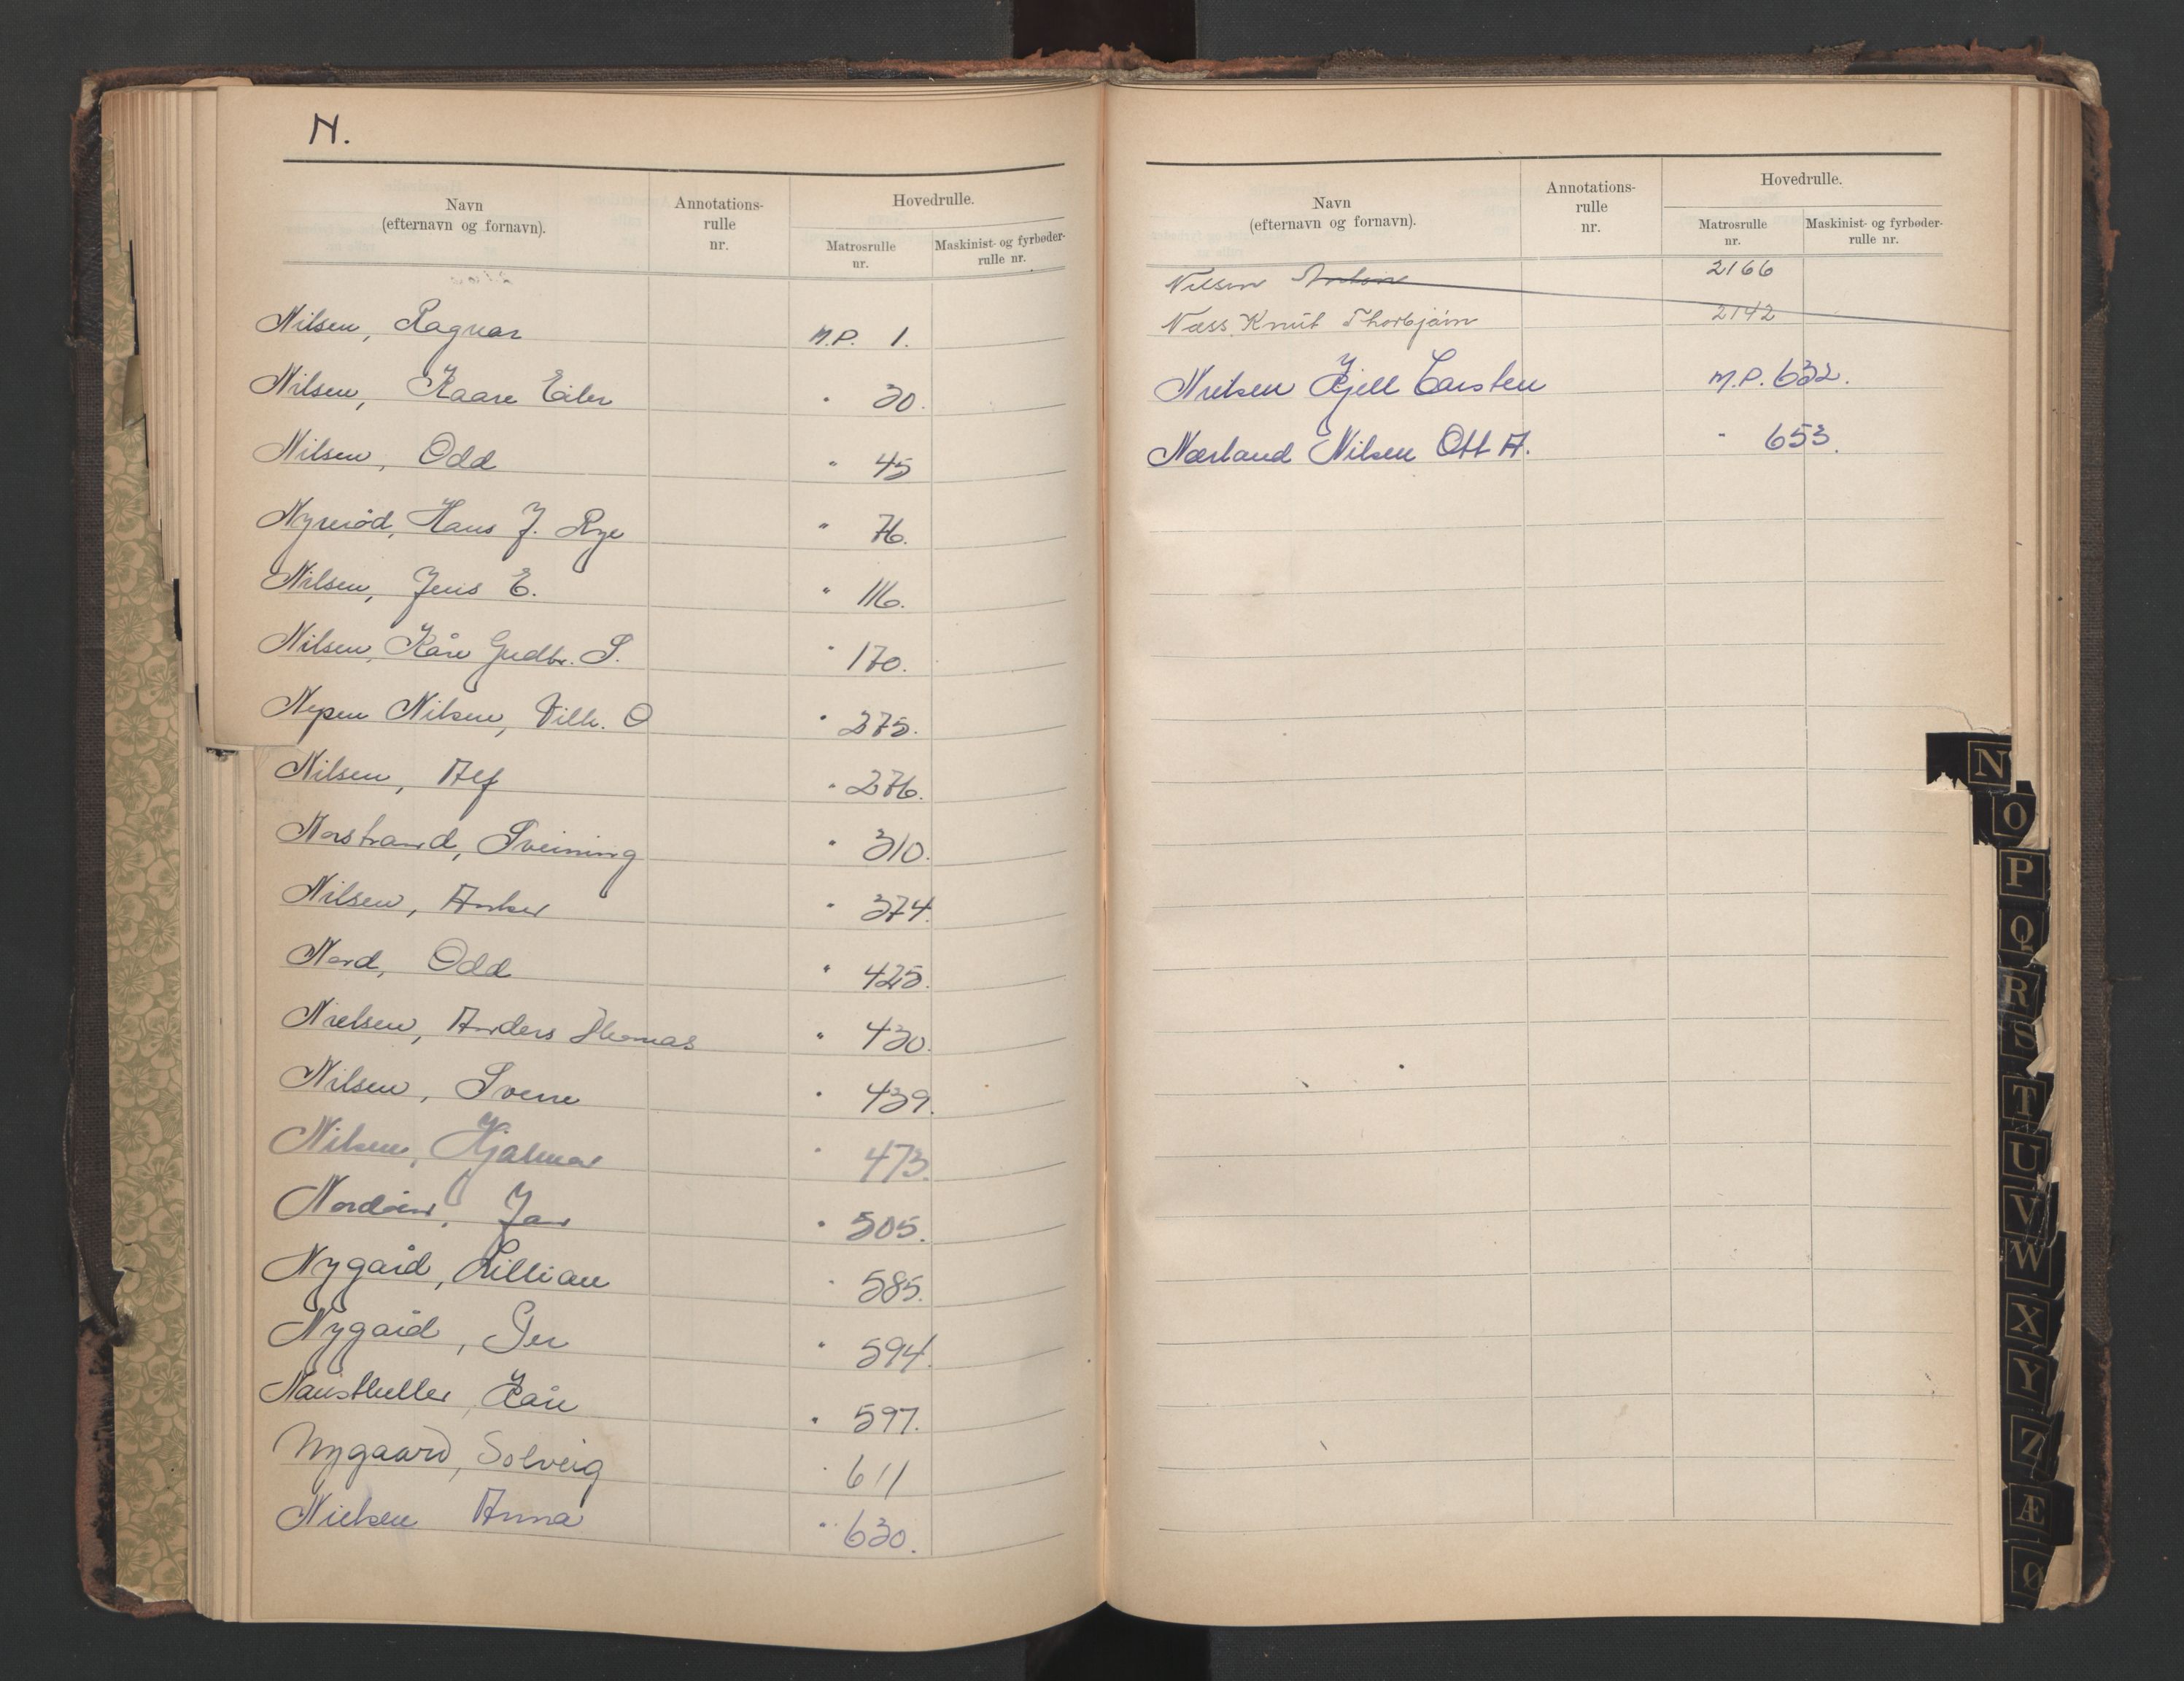 N.
Navn (efternavn og fornavn). Annotations-rulle nr. Hovedrulle. Matrosrulle nr. Maskinist- og fyrbøder-rulle nr.
Nilsen, Ragnar M.P. 1.
Nilsen, Kaare Eiler " 30.
Nilsen, Odd " 45
Nyrerød, Hans J. Rye " 76.
Nilsen, Jens E. " 116.
Nilsen, Kåre Gudbr. S. " 170.
Nilsen, Vilh. O " 275.
Nilsen, Alf " 276.
Norstrand, Sveining " 310.
Nilsen, Anker " 374.
Nord, Odd " 425.
Nielsen, Anders Thomas " 430.
Nilsen, Sverre " 439.
Nilsen, Hjalmar " 473.
Jan " 505.
Nygård, Lillian " 585.
Nygård, Per " 594.
Naustheller, Kåre " 597.
Nygaard, Solveig " 611
Nielsen Anna " 630.
Navn (efternavn og fornavn). Annotations-rulle nr. Hovedrulle. Matrosrulle nr. Maskinist- og fyrbøder-rulle nr.
Nilsen Anton 2166
Næss Knut Thorbjørn 2142
Nielsen Kjell Carsten M.P. 632.
Nærland Nilsen Ott A. " 653.
N
O
P
Q
R
S
T
U
V
W
X
Y
Z
Æ
Ø